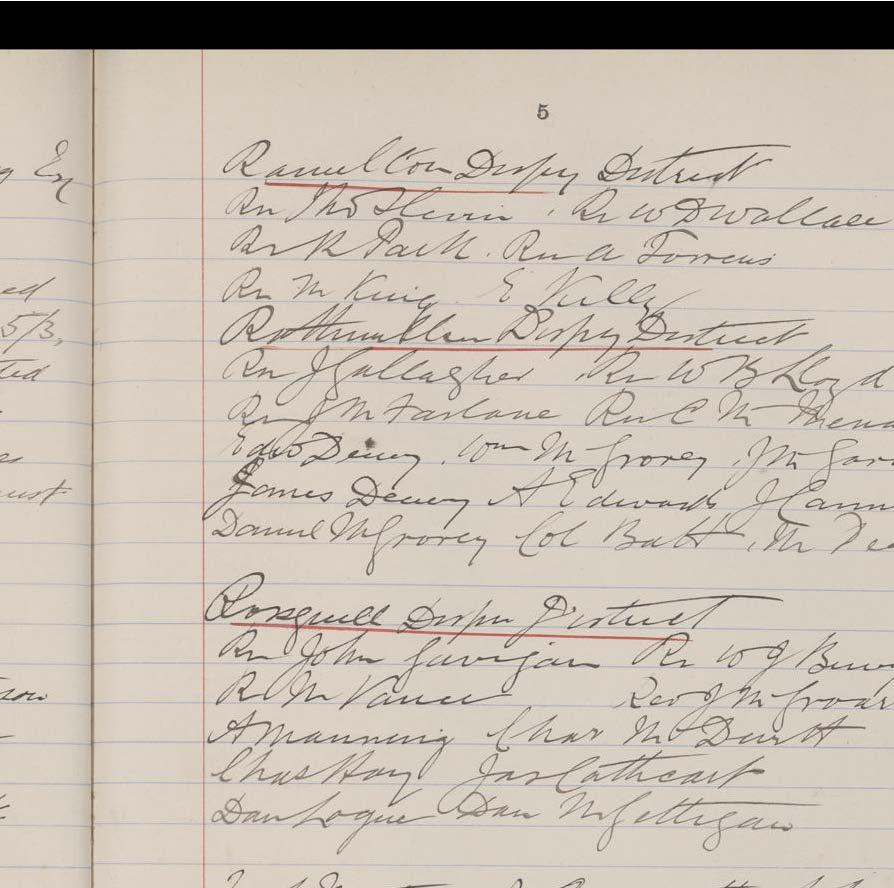 g Esq
5
Ramelton Dispy District
Rev Thos Slevin . Rev W D Wallace
Rev R Park . Rev A Torrens
Rev M King . E Kelly
ed
Rathmullen Dispy District
5/3,
Rev J Gallagher . Rev W B Lloyd
ted
Rev J McFarlane Rev C M
Edwd Deeny . Wm McGrorey . J M
James Deeny A Edwards J Cann
ust
Daniel McGrorey Col Batt . M
Rosguill Dispy District
Rev John Gavigan Rev W J
R M Vance Rev J M
A Manning Chas McDevitt
Chas Hay Jas Cathcart
Dan Logue Dan McGettigan